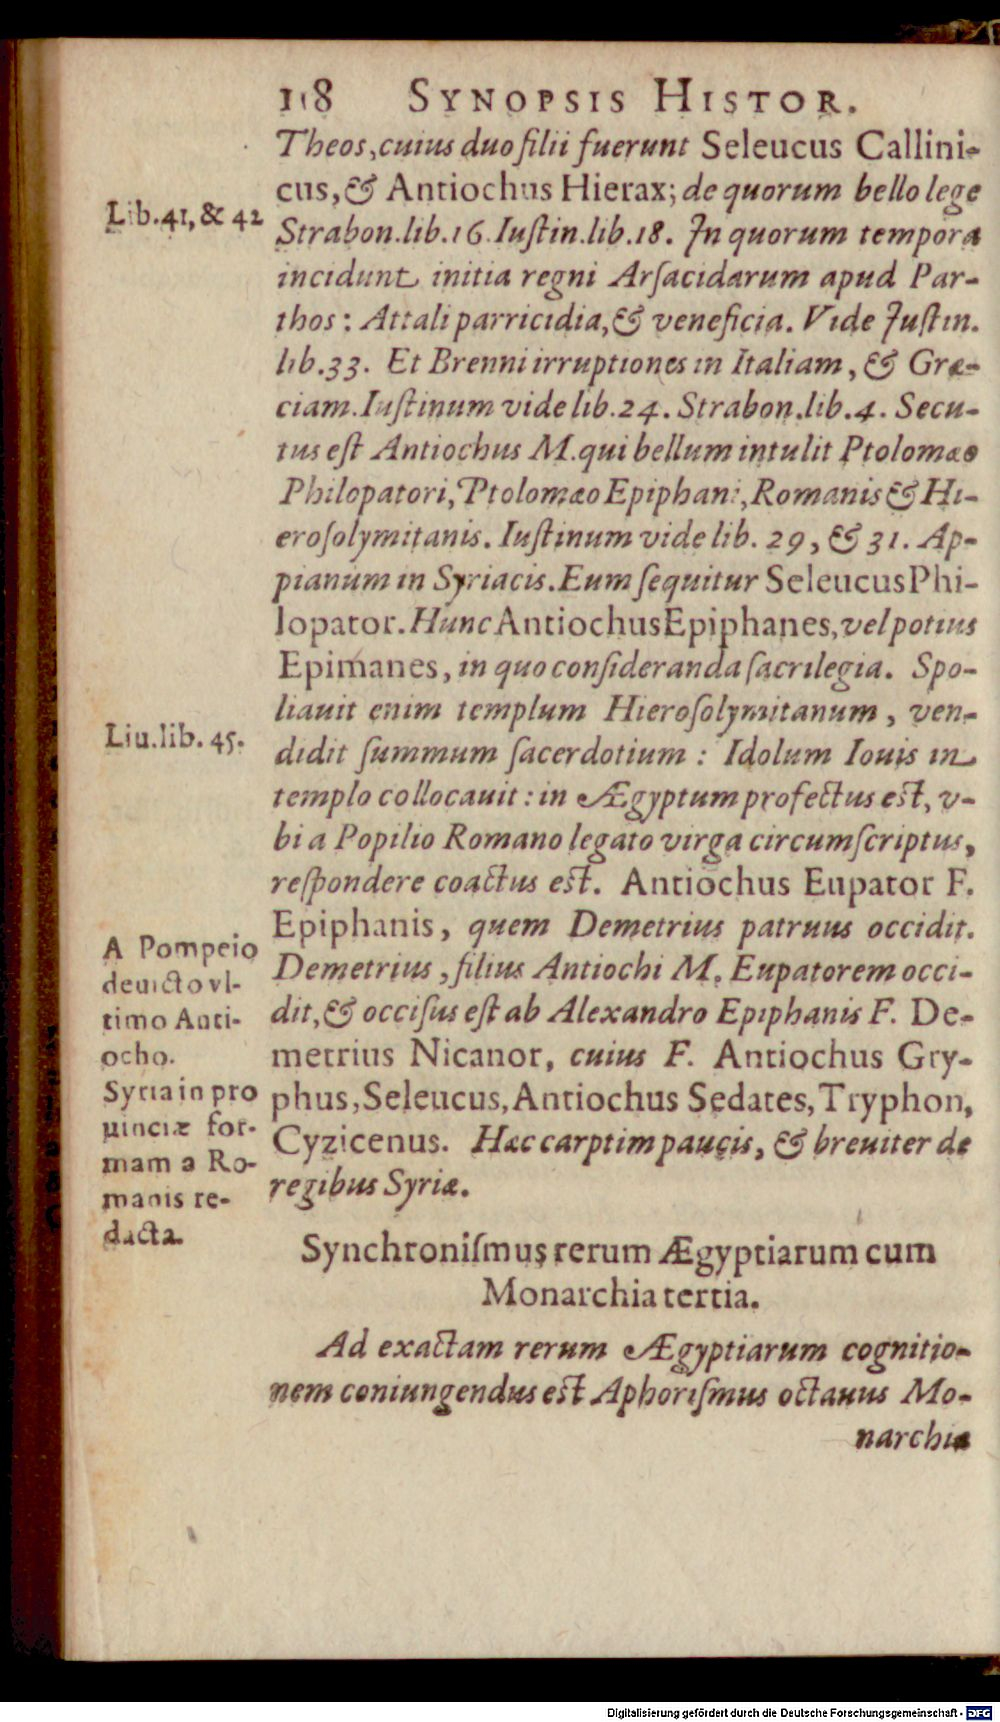 118 SYNOPSIS HISTOR.
Theos, cuius duo filii fuerunt Seleucus Callini-
cus, & Antiochus Hierax; de quorum bello lege
Lib. 41, & 42
Strabon. lib. 16. Iuſtin. lib. 18. In quorum tempora
incidunt initia regni Arſacidarum apud Par-
thos: Attali parricidia, & veneficia. Vide Juſtin.
lib. 33. Et Brenni irruptiones in Italiam, & Græ-
ciam. Iuſtinum vide lib. 24. Strabon. lib. 4. Secu-
tus eſt Antiochus M. qui bellum intulit Ptolomæo
Philopatori, Ptolomæo Epiphani, Romanis & Hi-
eroſolymitanis. Iuſtinum vide lib. 29, & 31. Ap-
pianum in Syriacis. Eum ſequitur Seleucus Phi-
lopator. Hunc Antiochus Epiphanes, vel potius
Epimanes, in quo conſideranda ſacrilegia. Spo-
liauit enim templum Hieroſolymitanum, ven-
Liu. lib. 45.
didit ſummum ſacerdotium: Idolum Iouis in
templo collocauit: in Ægyptum profectus eſt, v-
bi a Popilio Romano legato virga circumſcriptus,
reſpondere coactus eſt. Antiochus Eupator F.
Epiphanis, quem Demetrius patruus occidit.
Demetrius, filius Antiochi M. Eupatorem occi-
dit, & occiſus eſt ab Alexandro Epiphanis F. De-
metrius Nicanor, cuius F. Antiochus Gry-
phus, Seleucus, Antiochus Sedates, Tryphon,
Cyzicenus. Hæc carptim paucis, & breuiter de
regibus Syriæ.
A Pompeio
deuicto vl-
timo Anti-
ocho.
Syria in pro
uinciæ for-
mam a Ro-
manis re-
dacta.
Synchroniſmus rerum Ægyptiarum cum
Monarchia tertia.
Ad exactam rerum Ægyptiarum cognitio-
nem coniungendus eſt Aphoriſmus octauus Mo-
narchiæ
Digitalisierung gefördert durch die Deutsche Forschungsgemeinschaft - DFG